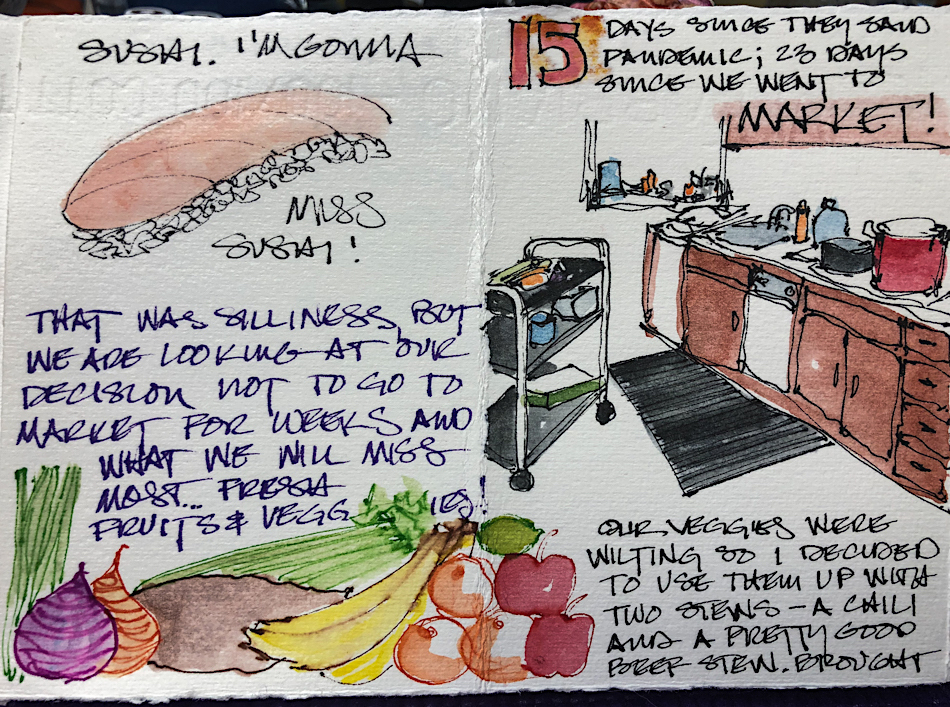 SUSHI. I'M GONNA
MISS
SUSHI!
THAT WAS SILLINESS, BUT
WE ARE LOOKING AT OUR
DECISION NOT TO GO TO
MARKET FOR WEEKS AND
WHAT WE WILL MISS
MOST... FRESH
FRUITS & VEGGIES!
15 DAYS SINCE THEY SAID
PANDEMIC; 23 DAYS
SINCE WE WENT TO
MARKET!
OUR VEGGIES WERE
WILTING SO I DECIDED
TO USE THEM UP WITH
TWO STEWS - A CHILI
AND A PRETTY GOOD
BEEF STEW. BROUGHT